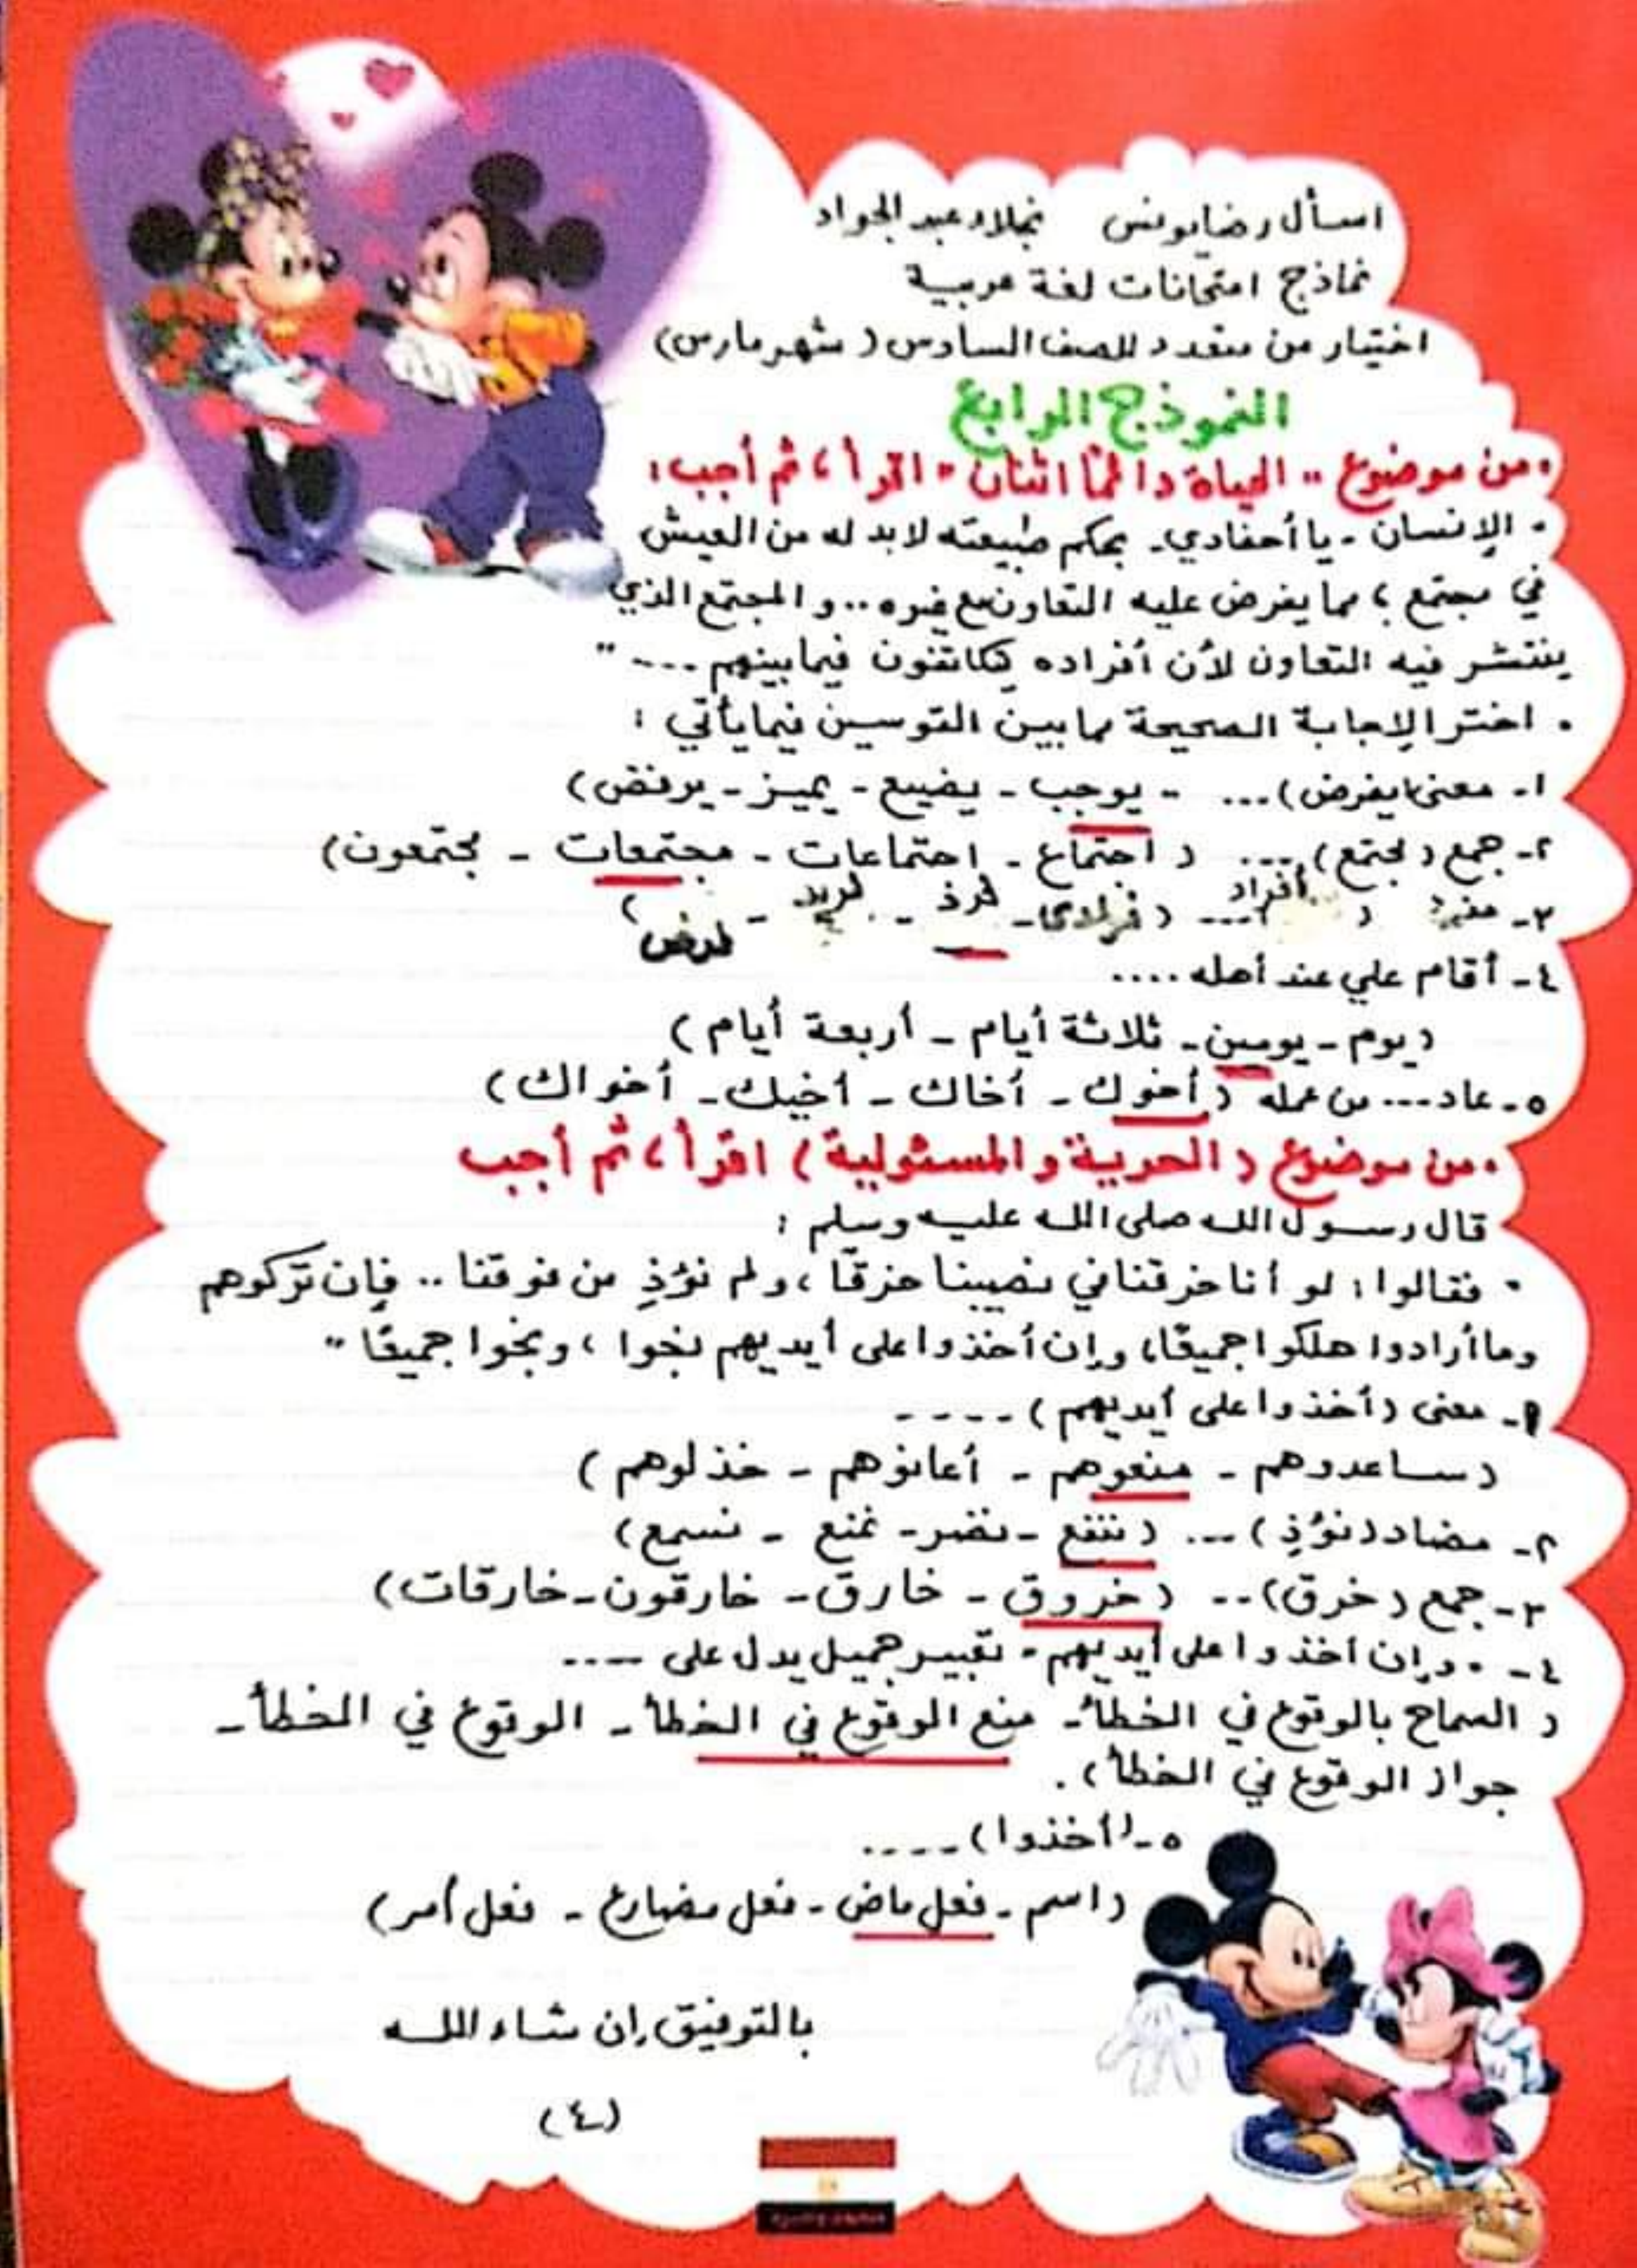 اسأل رضا يونس نجلاء عبد الجواد
نماذج امتحانات لغة عربية
اختيار من متعدد للصف السادس (شهر مارس)
النموذج الرابع
• من موضوع "الحياة دائمًا اثنان" اقرأ، ثم أجب:
" الإنسان - يا أحفادي - بحكم طبيعته لابد له من العيش
في مجتمع؛ مما يفرض عليه التعاون مع غيره.. والمجتمع الذي
ينتشر فيه التعاون لأن أفراده يتكاتفون فيما بينهم ---"
• اختر الإجابة الصحيحة مما بين القوسين فيما يأتي:
١- معنى (يفرض)... - يوجب - يضيع - يميز - يرفض)
٢- جمع (مجتمع) ... (اجتماع - اجتماعات - مجتمعات - مجتمعون)
٣- مفرد (أفراد) ... (فرادى - فرد - فريد - فرض)
٤- أقام علي عند أهله ....
(يوم - يومين - ثلاثة أيام - أربعة أيام)
٥- عاد... من عمله (أخوك - أخاك - أخيك - أخواك)
• من موضوع (الحرية والمسئولية) اقرأ، ثم أجب
قال رسول الله صلى الله عليه وسلم:
" فقالوا: لو أنا خرقنا في نصيبنا خرقًا، ولم نؤذِ من فوقنا.. فإن تركوهم
وما أرادوا هلكوا جميعًا، وإن أخذوا على أيديهم نجوا، ونجوا جميعًا"
١- معنى (أخذوا على أيديهم) ----
(ساعدوهم - منعوهم - أعانوهم - خذلوهم)
٢- مضاد (نؤذِ) ... (ننفع - نضر - نمنع - نسمع)
٣- جمع (خرق) .. (خروق - خارق - خارقون - خارقات)
٤- "وإن أخذوا على أيديهم" تعبير جميل يدل على ----
(السماح بالوقوع في الخطأ - منع الوقوع في الخطأ - الوقوع في الخطأ -
جواز الوقوع في الخطأ).
٥- (أخذوا) ----
(اسم - فعل ماض - فعل مضارع - فعل أمر)
بالتوفيق إن شاء الله
(٤)